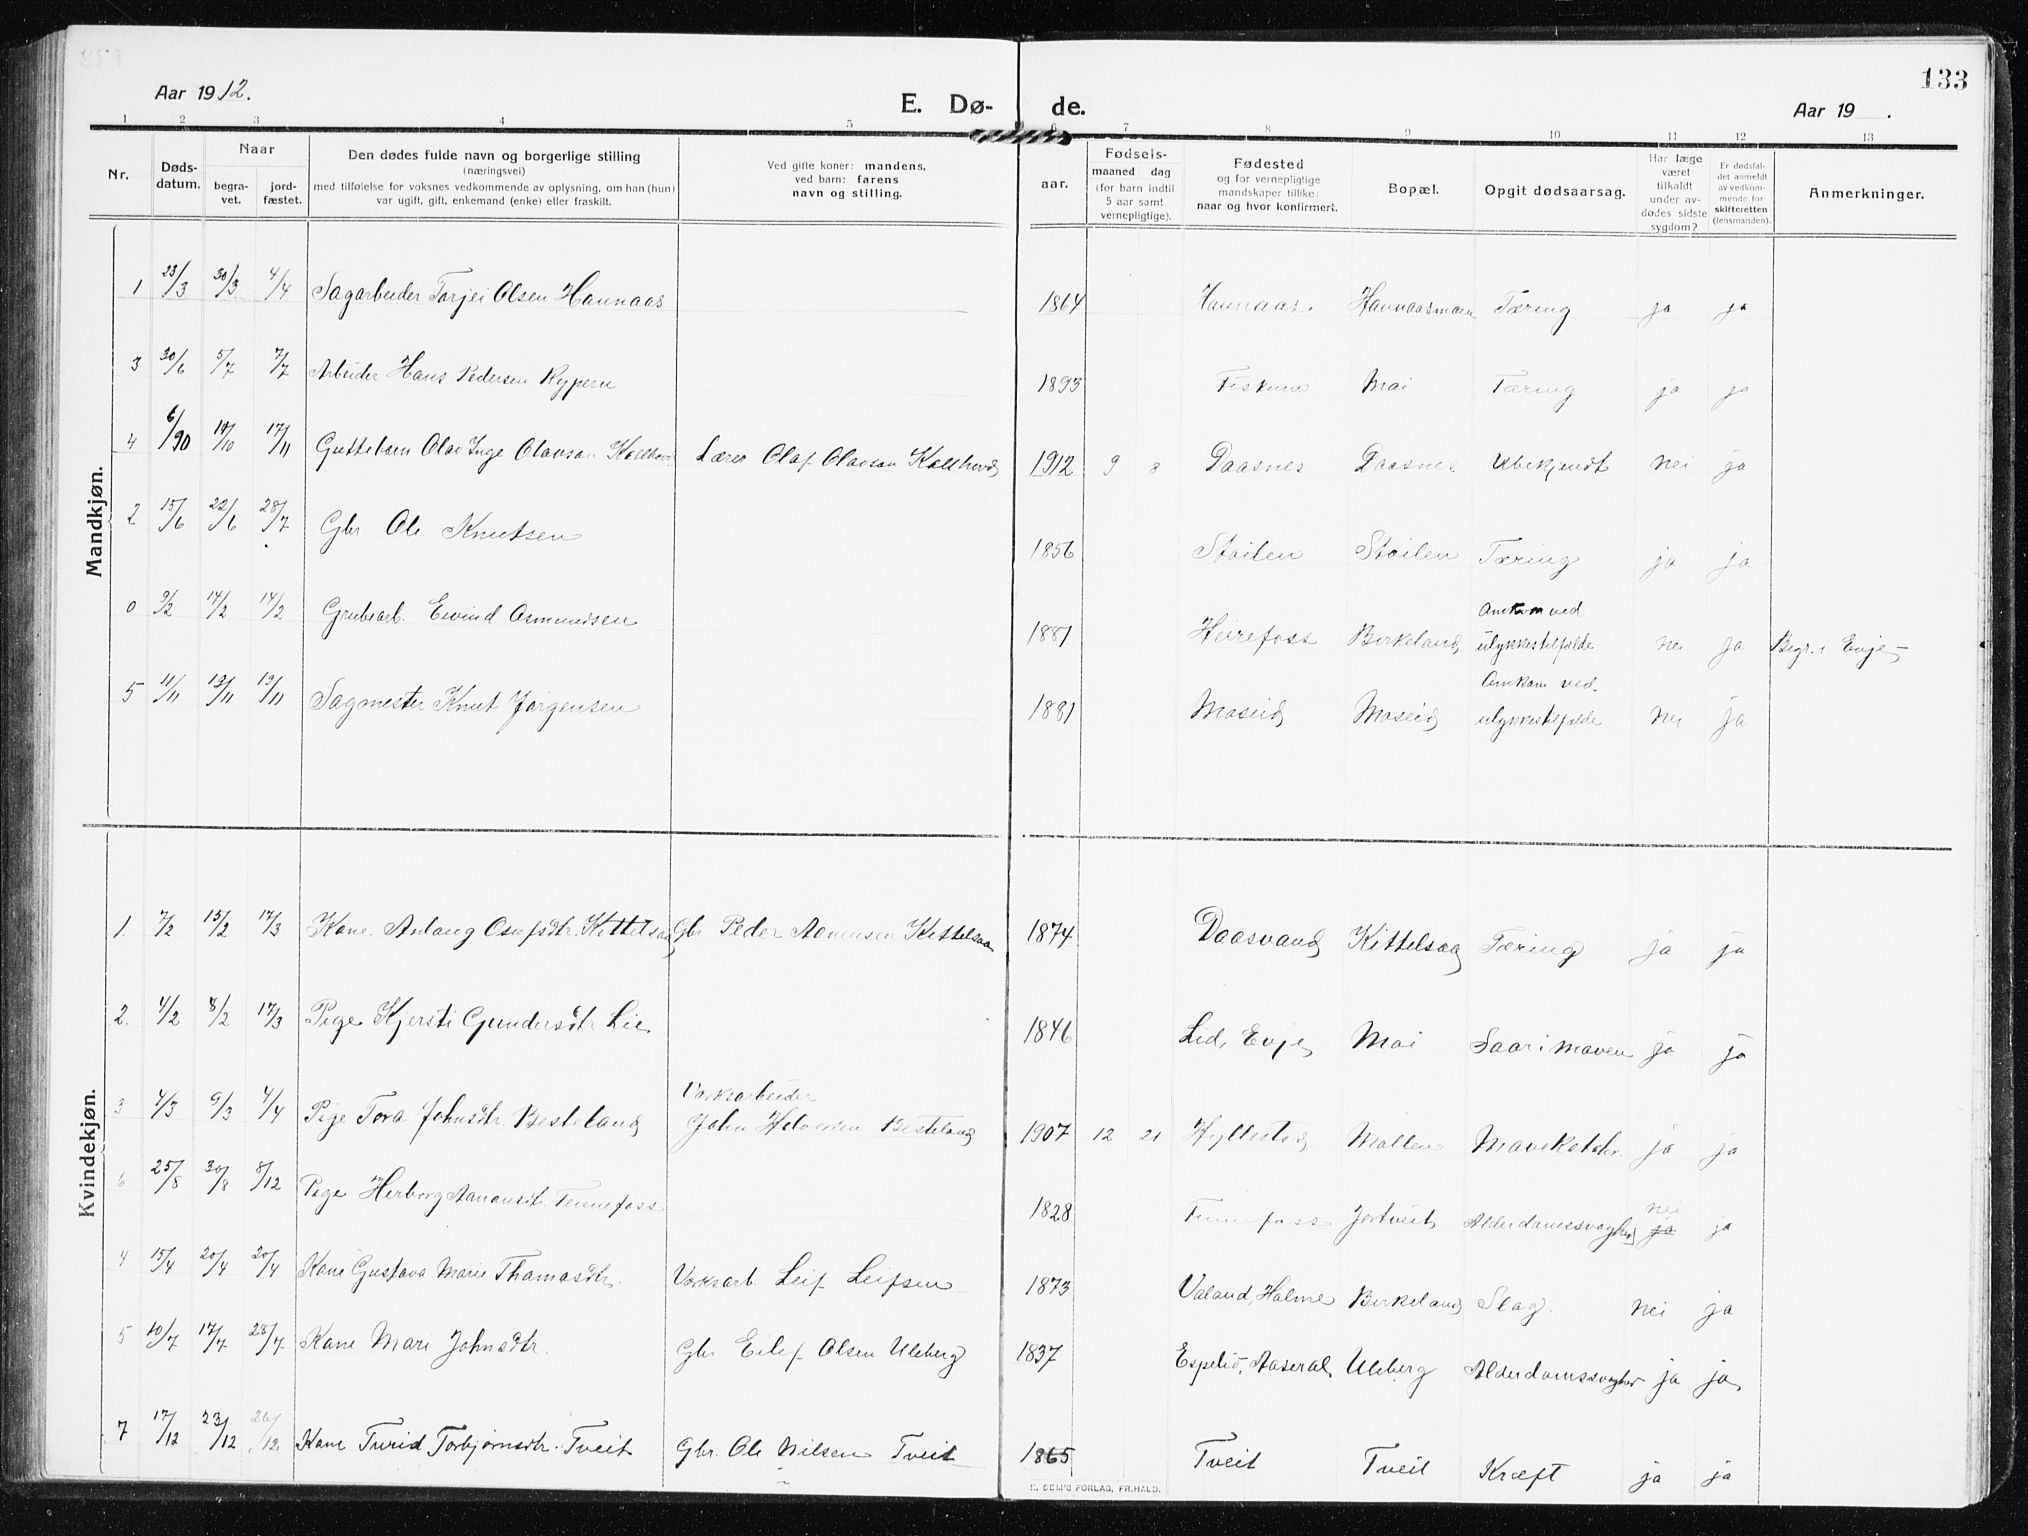 133
Aar 1912.
E. Dø- de.
Aar 19 .
1 2 3 4 5 6 7 8 9 10 11 12 13
Nr.
Døds-
datum.
Naar
begra-
vet.
jord-
fæstet.
Den dødes fulde navn og borgerlige stilling
(næringsvei)
med tilføielse for voksnes vedkommende av oplysning, om han (hun)
var ugift, gift, enkemand (enke) eller fraskilt.
Ved gifte koner: mandens,
ved barn: farens
navn og stilling.
Fødsels-
aar.
maaned dag
(for barn indtil
5 aar samt
vernepligtige).
Fødested
og for vernepligtige
mandskaper tillike:
naar og hvor konfirmert.
Bopæl.
Opgit dødsaarsag.
Har læge
været
tilkaldt
under av-
dødes sidste
sygdom?
Er dødsfal-
det anmeldt
av vedkom-
mende for
skifteretten
(lensmanden).
Anmerkninger.
Mandkjøn.
1 23/3 30/3 4/4 Sagarbeider Torjei Olsen Hannaas 1864 Hannaas. Hannaasmoen Tæring ja ja
3 30/6 5/7 7/7 Arbeider Hans Pedersen Rypern 1893 Fiskum Moi Tæring ja ja
4 6/90 10 17/11 Guttebarn Olav Inge Olavson Lærer Olaf Olavson 1912 9 8 Daasnes Daasnes Ubekjendt nei ja
2 15/6 22/6 28/7 Gbr. Ole Knutsen 1856 Støilen Støilen Tæring ja ja
0 9/2 14/2 14/2 Grubearb. Eivind Osmundsen 1881 Heirefoss Birkeland Omkom ved ulykkestilfælde nei ja Begr. i Evje
5 11/11 19/11 19/11 Sagmester Knut Jørgensen 1881 Moseid Moseid Omkom ved ulykkestilfælde nei ja
Kvindekjøn.
1. 7/2 15/2 17/3 Kone Anlaug Osufsdtr. Kittelsaa Gbr Peder Aanensen Kittelsaa 1874 Daasvand Kittelsaa Tæring ja ja
2. 4/2 8/2 17/3 Pige Kjersti Gundersdtr Lie 1846 Lid, Evje Moi Saar i maven ja ja
3 4/3 9/3 4/4 Pige Tora Johnsdtr. Besteland Verksarbeider
John Halvorsen Besteland 1907 12 21 Hyllestad Mollen Mavekatahr. ja ja
6 25/8 30/8 8/12 Pige Herborg Aanonsdt. Fennefoss 1828 Fennefoss Jortveit Alderdomssvaghed nei ja ja
4 15/4 20/4 20/4 Kone Gustava Marie Thomasdtr. Verksarb. Leif Leifsen 1873 Valand, Holme Birkeland Slag. nei ja
5 10/7 17/7 28/7 Kone Mari Johnsdtr. Gbr. Eilef Olsen Uleberg 1837 Espelid, Aaseral Uleberg Alderdomssvaghed ja ja
7 17/12 23/12 26/12 Kone Turid Torbjørnsdtr. Tveit Gbr. Ole Nilsen Tveit 1865 Tveit Tveit Kræft ja ja
E. SEM'S FORLAG, FR.HALD.